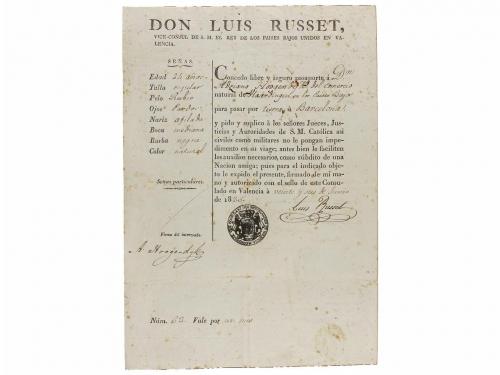 DON LUIS RUSSET,
VICE-CONSUL DE S. M. EL REY DE LOS PAISES BAJOS UNIDOS EN VA-
LENCIA.
SEÑAS.
Edad 24 años
Talla regular
Pelo Rubio
Ojos Pardos
Nariz afilada
Boca mediana
Barba negra
Color natural
Señas particulares.
Firma del interesado.
A. Hoogendyk
Concedo libre y seguro pasaporte á Don
Adriano del comercio
natural de en los Paises Bajos
para pasar por tierra á Barcelona
y pido y suplico á los señores Jueces, Jus-
ticias y Autoridades de S. M. Católica así
civiles como militares no le pongan impe-
dimento en su viage; antes bien le faciliten
los auxilios necesarios, como súbdito de una
Nacion amiga; pues para el indicado objeto
le expido el presente, firmado de mi ma-
no y autorizado con el sello de este Consu-
lado en Valencia á veinte y seis de
de 18
Luis Russet
Núm. Vale por un mes